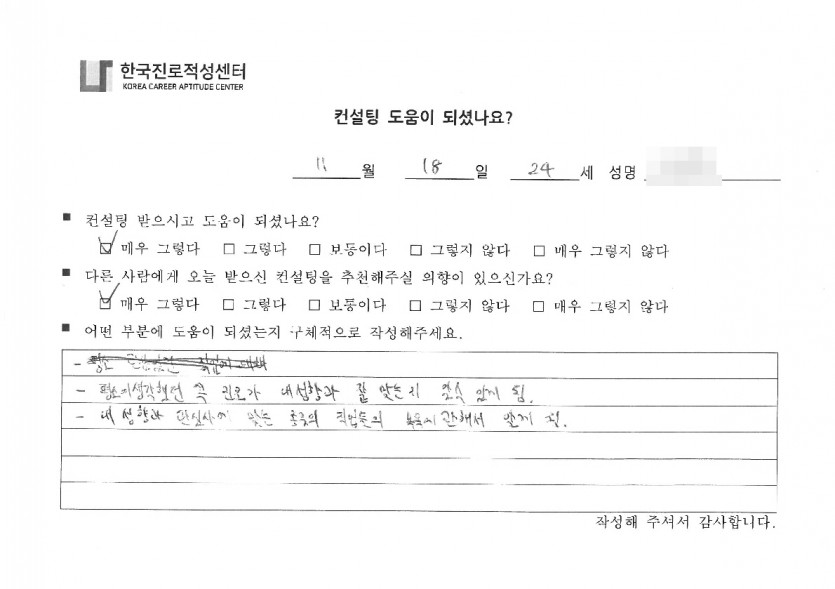 한국진로적성센터
KOREA CAREER APTITUDE CENTER
컨설팅 도움이 되셨나요?
11 월 18 일 24 세 성명
■ 컨설팅 받으시고 도움이 되셨나요?
☑ 매우 그렇다 □ 그렇다 □ 보통이다 □ 그렇지 않다 □ 매우 그렇지 않다
■ 다른 사람에게 오늘 받으신 컨설팅을 추천해주실 의향이 있으신가요?
☑ 매우 그렇다 □ 그렇다 □ 보통이다 □ 그렇지 않다 □ 매우 그렇지 않다
■ 어떤 부분에 도움이 되셨는지 구체적으로 작성해주세요.
- 평소
- 평소에 생각했던 진로가 내성향과 잘 맞는지 알게 됨.
- 내 성향과 맞는 직업들의 관해서 알게 됨.
작성해 주셔서 감사합니다.